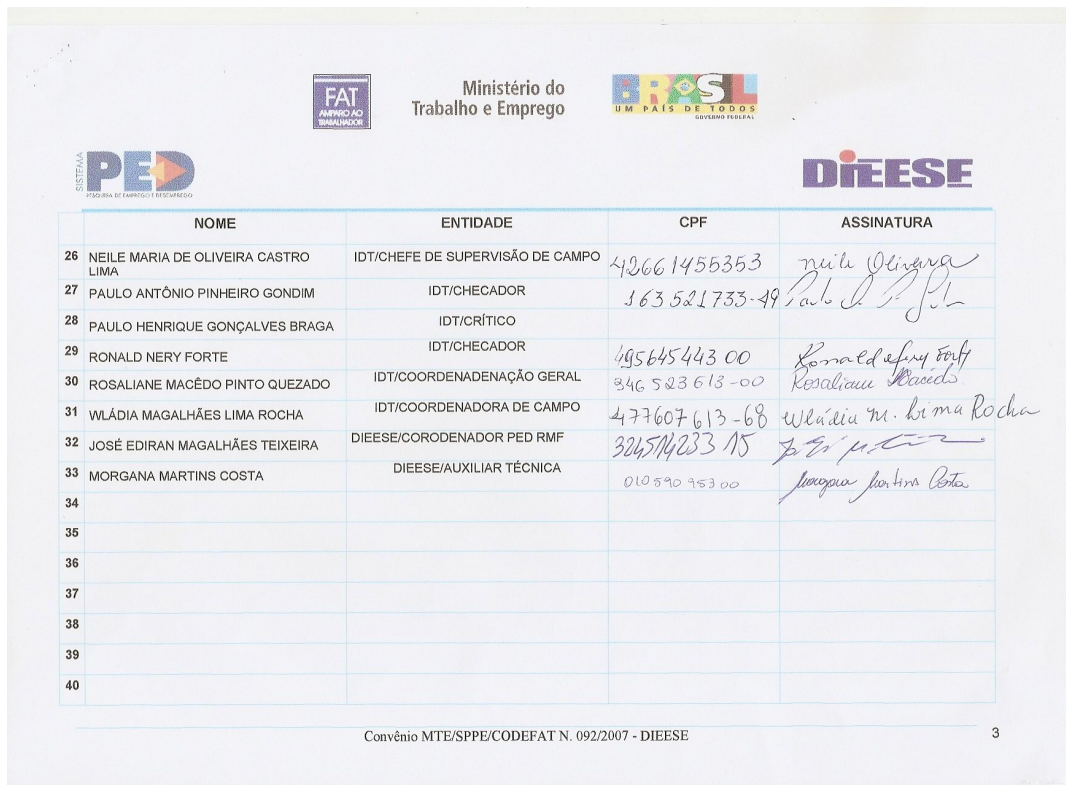 FAT
AMPARO AO
TRABALHADOR
Ministério do
Trabalho e Emprego
BRASIL
UM PAÍS DE TODOS
GOVERNO FEDERAL
SISTEMA
PED
PESQUISA DE EMPREGO E DESEMPREGO
DIEESE
NOME ENTIDADE CPF ASSINATURA
26 NEILE MARIA DE OLIVEIRA CASTRO LIMA IDT/CHEFE DE SUPERVISÃO DE CAMPO 42661455353 Neile Oliveira
27 PAULO ANTÔNIO PINHEIRO GONDIM IDT/CHECADOR 163521733-49 Paulo
28 PAULO HENRIQUE GONÇALVES BRAGA IDT/CRÍTICO
29 RONALD NERY FORTE IDT/CHECADOR 495645443 00 Ronald Nery Forte
30 ROSALIANE MACÊDO PINTO QUEZADO IDT/COORDENADENAÇÃO GERAL 346 523 613-00 Rosaliane Macêdo
31 WLÁDIA MAGALHÃES LIMA ROCHA IDT/COORDENADORA DE CAMPO 477607613-68 Wládia M. Lima Rocha
32 JOSÉ EDIRAN MAGALHÃES TEIXEIRA DIEESE/CORODENADOR PED RMF 324514233 15
33 MORGANA MARTINS COSTA DIEESE/AUXILIAR TÉCNICA 010 590 953 00 Morgana Martins Costa
34
35
36
37
38
39
40
Convênio MTE/SPPE/CODEFAT N. 092/2007 - DIEESE 3